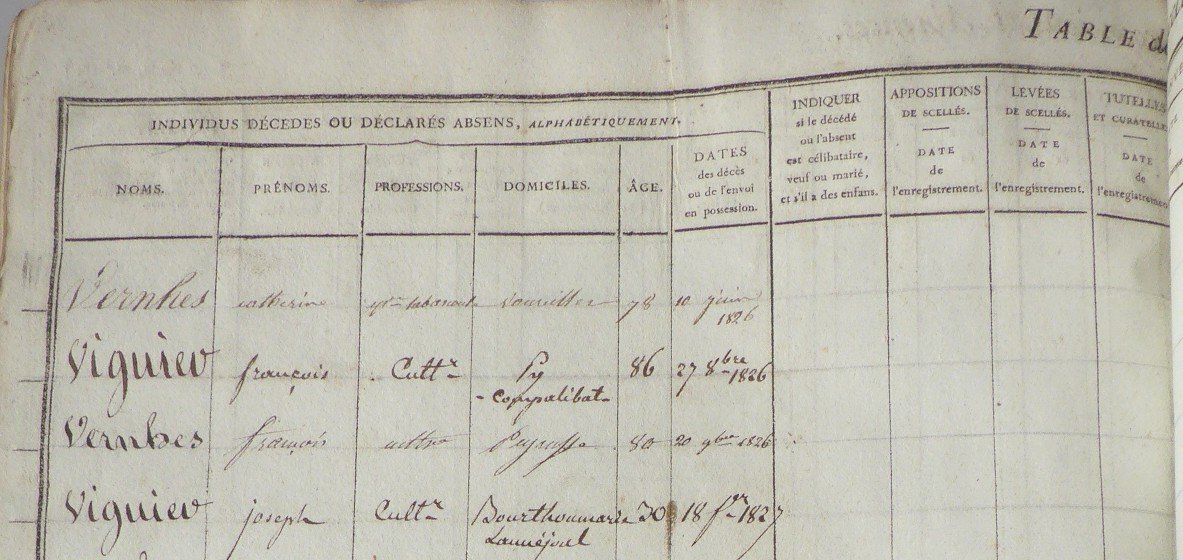 TABLE de
INDIVIDUS DÉCÉDÉS OU DÉCLARÉS ABSENS, ALPHABÉTIQUEMENT.
NOMS.
PRÉNOMS.
PROFESSIONS.
DOMICILES.
ÂGE.
DATES
des décès
ou de l'envoi
en possession.
INDIQUER
si le décédé
ou l'absent
est célibataire,
veuf ou marié,
et s'il a des enfans.
APPOSITIONS
DE SCELLÉS.
DATE
de
l'enregistrement.
LEVÉES
DE SCELLÉS.
DATE
de
l'enregistrement.
TUTELLES
ET CURATELLES
DATE
de
l'enregistrement
Vernhes catherine 78 10 juin
1826
Viguier françois Cultr 86 27 8bre 1826
Vernhes françois 80 20 9bre 1826
Viguier joseph Cultr Bourthoumarie 30 18 fer 1827
Lannéjoul